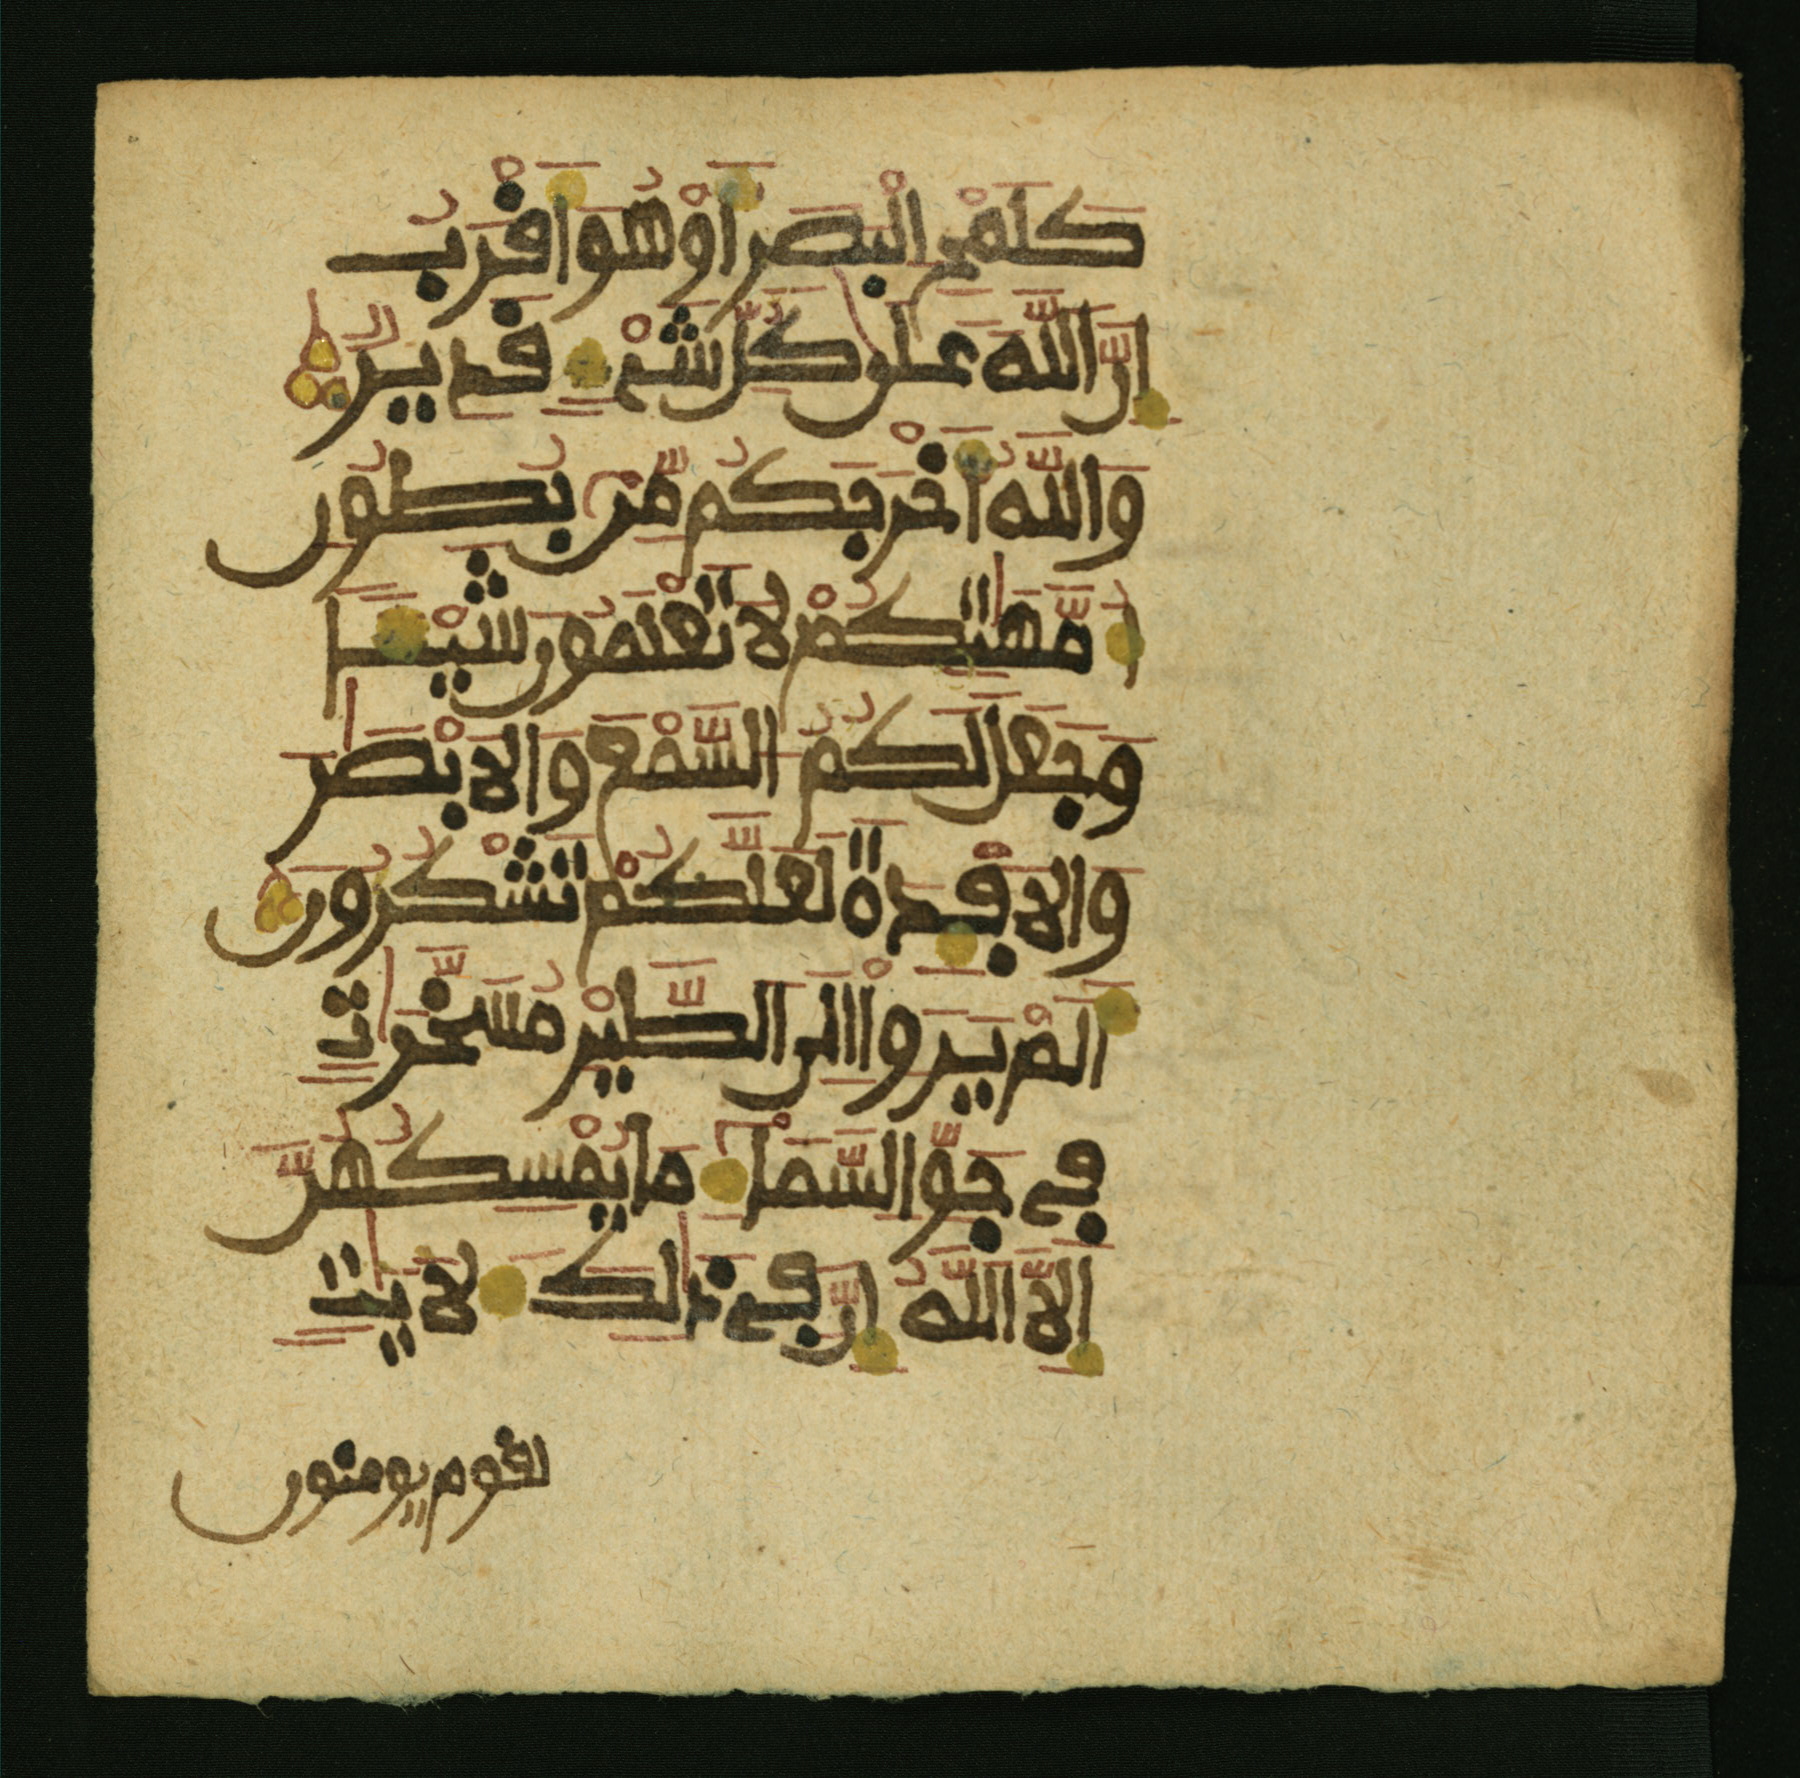 كَلَمْحِ الْبَصَرِ أَوْ هُوَ أَقْرَبُ
إِنَّ اللَّهَ عَلَىٰ كُلِّ شَيْءٍ قَدِيرٌ
وَاللَّهُ أَخْرَجَكُم مِّنۢ بُطُونِ
أُمَّهَٰتِكُمْ لَا تَعْلَمُونَ شَيْـًٔا
وَجَعَلَ لَكُمُ السَّمْعَ وَالْأَبْصَٰرَ
وَالْأَفْـِٔدَةَ لَعَلَّكُمْ تَشْكُرُونَ
أَلَمْ يَرَوْا إِلَى الطَّيْرِ مُسَخَّرَٰتٍ
فِي جَوِّ السَّمَآءِ مَا يُمْسِكُهُنَّ
إِلَّا اللَّهُ إِنَّ فِي ذَٰلِكَ لَأٓيَٰتٍ
لقوم يومنون